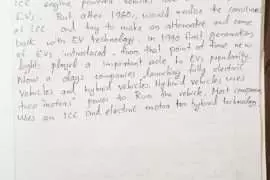 ICE engine powered vehicles
EVs. But after 1960, would realise the
of ICE and try to make an alternative and come
back with EV technology. In 1990 first generation
of EVs introduced. from that point of time new
lights played a important role to EVs popularity.
Now a days companies launching fully electric
vehicles and hybrid vehicles. Hybrid vehicles uses
two "motors" power to Run the vehicle. Most companies
uses an ICE and electric motor for hybrid technology.